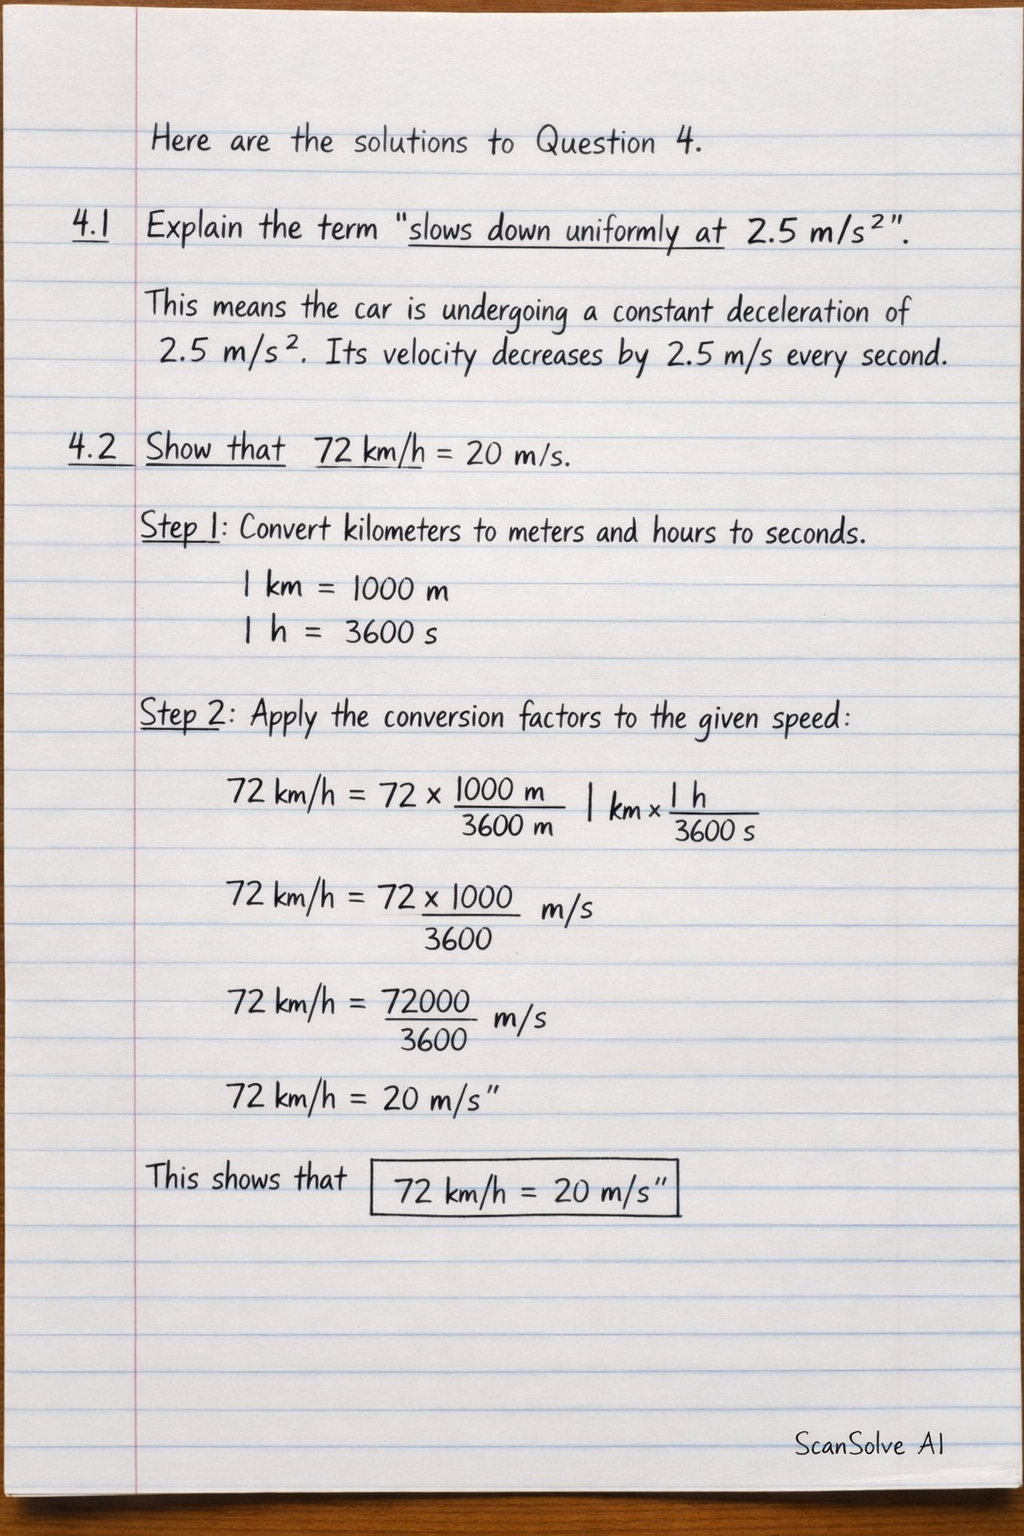 Here are the solutions to Question 4.
4.1 Explain the term "slows down uniformly at 2.5 m/s²".
This means the car is undergoing a constant deceleration of
2.5 m/s². Its velocity decreases by 2.5 m/s every second.
4.2 Show that 72 km/h = 20 m/s.
Step 1: Convert kilometers to meters and hours to seconds.
1 km = 1000 m
1 h = 3600 s
Step 2: Apply the conversion factors to the given speed:
72 km/h = 72 × 1000 m / 3600 m 1 km × 1 h / 3600 s
72 km/h = 72 × 1000 / 3600 m/s
72 km/h = 72000 / 3600 m/s
72 km/h = 20 m/s"
This shows that 72 km/h = 20 m/s"
ScanSolve AI